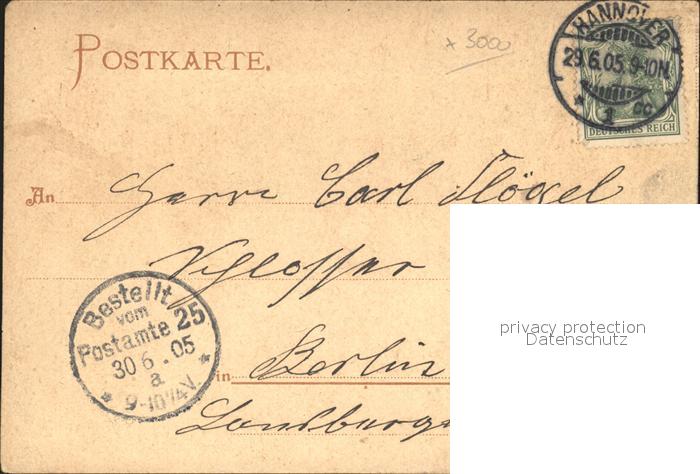 POSTKARTE.
x 3000
HANNOVER
29.6.05.9-10N.
* 1 cc
DEUTSCHES REICH
An Herrn Carl Flögel
Schlosser
privacy protection
Datenschutz
Bestellt
vom
Postamte 25
30 6. 05
a
* 9-10¼V. *
in Berlin
Landsberger